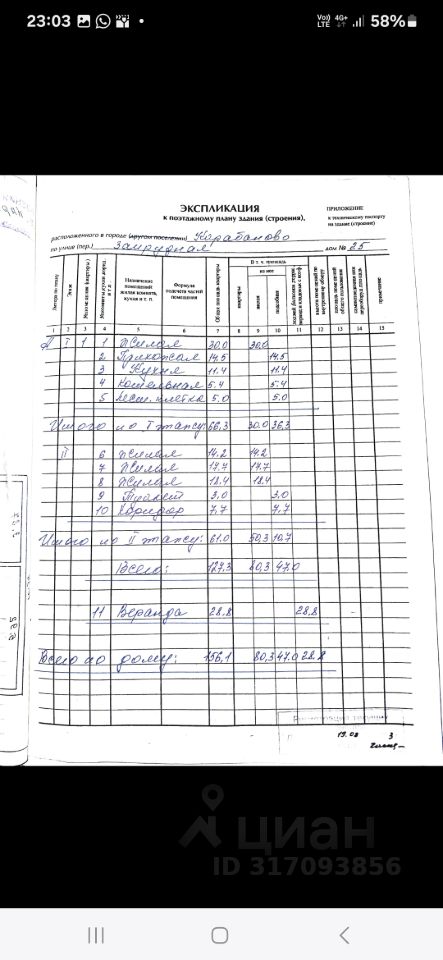 23:03
Vo)) LTE 4G+ 58%
ЭКСПЛИКАЦИЯ
к поэтажному плану здания (строения),
ПРИЛОЖЕНИЕ
к техническому паспорту
на здание (строение)
расположенного в городе (другом поселении) Карабаново
по улице (пер.) Заирудная дом № 25
Литера по плану
Этаж
Назначение помещений: жилая комната, кухня и т. п.
Формула подсчета частей помещения
В т. ч. площадь
из нее
квартиры
жилая
подсобная
примечание
1 2 3 4 5 6 7 8 9 10 11 12 13 14 15
А I 1 1 Жилая 30,0 30,0
2 Прихожая 14.5 14.5
3 Кухня 11.4 11.4
4 Котельная 5.4 5.4
5 Лест. клетка 5.0 5.0
Итого по I этажу: 66,3 30.0 36,3
II 6 Жилая 14.2 14.2
7 Жилая 17.7 17.7
8 Жилая 18.4 18.4
9 Туалет 3,0 3,0
10 Коридор 7,7 7,7
Итого по II этажу: 61.0 50,3 10,7
Всего: 127,3 80,3 47.0
11 Веранда 28,8 28,8
Всего по дому: 156,1 80,3 47.0 28.8
19.08
3
циан
ID 317093856